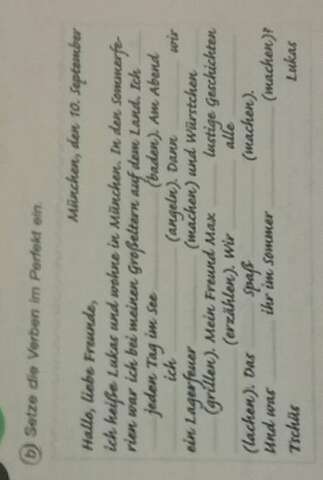 b) Setze die Verben im Perfekt ein.
München, den 10. September
Hallo, liebe Freunde,
ich heiße Lukas und wohne in München. In den Sommerfe-
rien war ich bei meinen Großeltern auf dem Land. Ich
jeden Tag im See (baden). Am Abend
ich (angeln). Dann wir
ein Lagerfeuer (machen) und Würstchen
(grillen). Mein Freund Max lustige Geschichten
(erzählen). Wir alle
(lachen). Das Spaß (machen).
Und was ihr im Sommer (machen)?
Tschüs Lukas